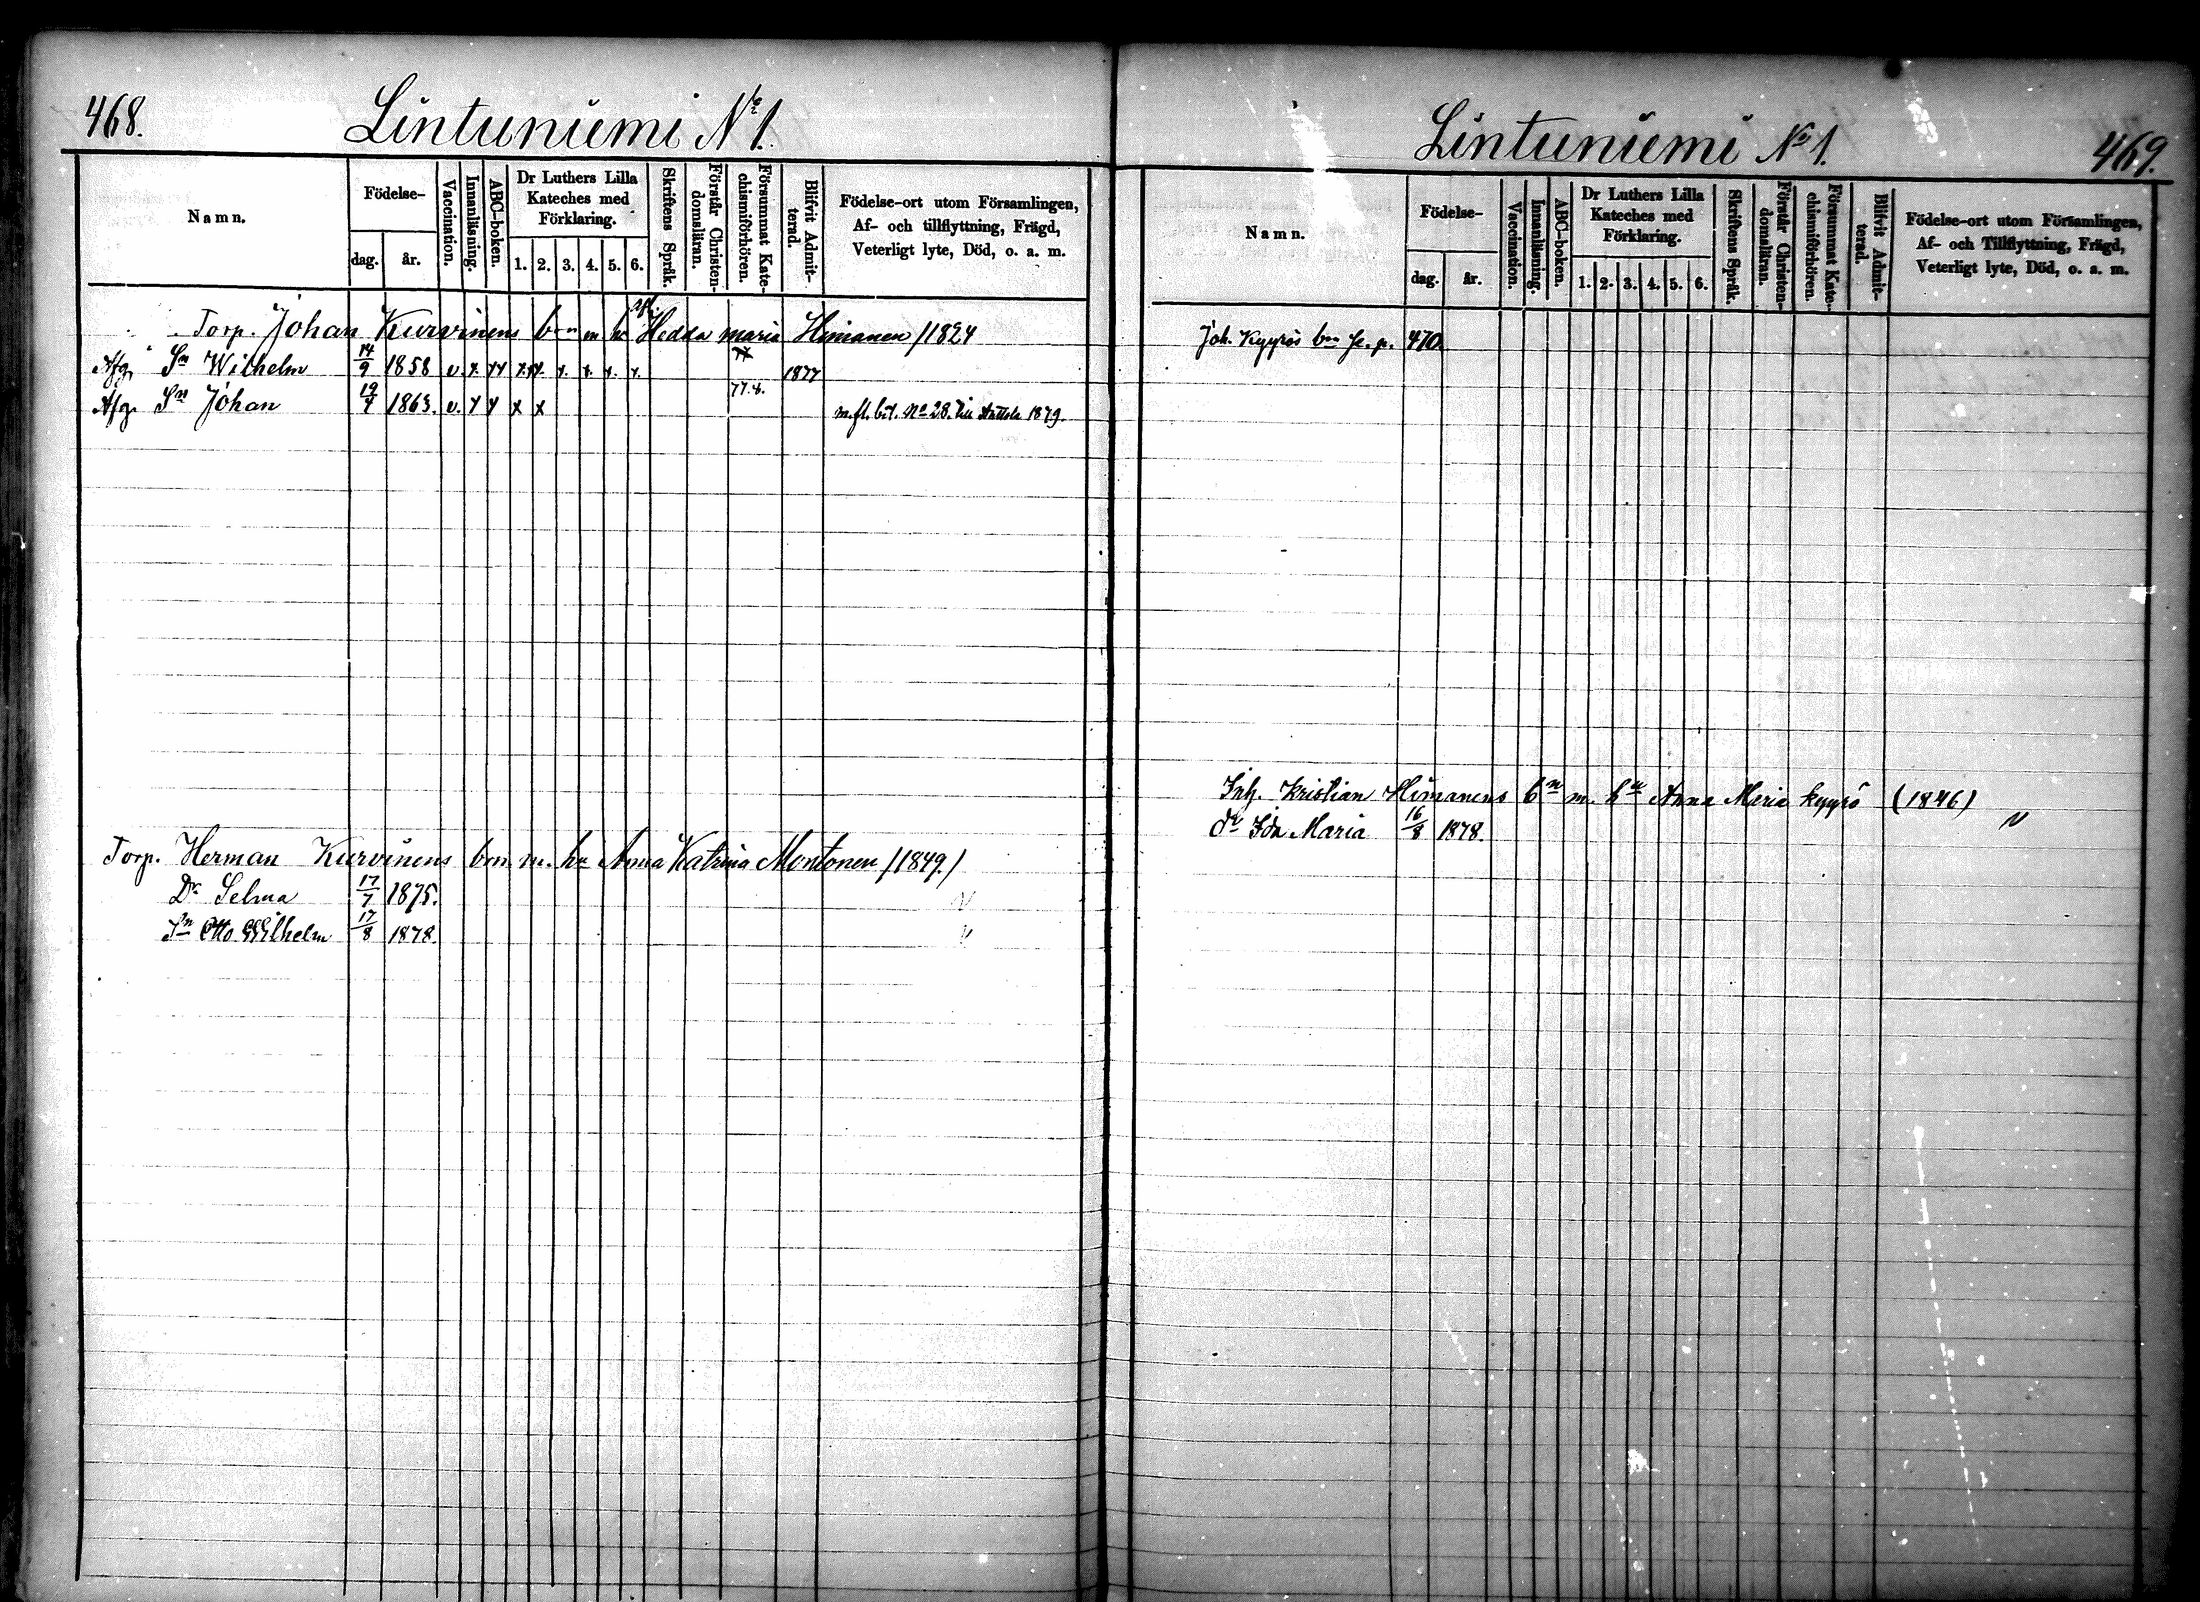 468.
Lintuniemi No 1.
Namn.
Födelse-
dag.
år.
Vaccination.
Innanläsning.
ABC-boken.
Dr Luthers Lilla Kateches med Förklaring.
1. 2. 3. 4. 5. 6.
Skriftens Språk.
Förstår Christendomsläran.
Försummat Katechismiförhören.
Blifvit Admitterad.
Födelse-ort utom Församlingen,
Af- och tillflyttning, Frägd,
Veterligt lyte, Död, o. a. m.
Torp. Johan Kurvinens bn m h Hedda Maria Himanen /1824
Afg. Sn Wilhelm 14/9 1858 v. x. xx x x x. x. x. x. 1877
Afg. Sn Johan 19/7 1863. v. x x x x 77.
m. fl. bet. No 28. till 1879.
Torp. Herman Kurvinens bn m. hu Anna Katrina Montonen /1849./
Dr Selma 17/7 1875.
Sn Otto Wilhelm 17/8 1878.
Lintuniemi No 1.
469.
Namn.
Födelse-
dag.
år.
Vaccination.
Innanläsning.
ABC-boken.
Dr Luthers Lilla Kateches med Förklaring.
1. 2. 3. 4. 5. 6.
Skriftens Språk.
Förstår Christendomsläran.
Försummat Katechismiförhören.
Blifvit Admitterad.
Födelse-ort utom Församlingen,
Af- och Tillflyttning, Frägd,
Veterligt lyte, Död, o. a. m.
Joh. Kyyrös bn Se. p. 470.
Inh. Kristian Himanens bn m. hu Anna Maria Kyyrö (1846)
dr Ida Maria 16/8 1878.